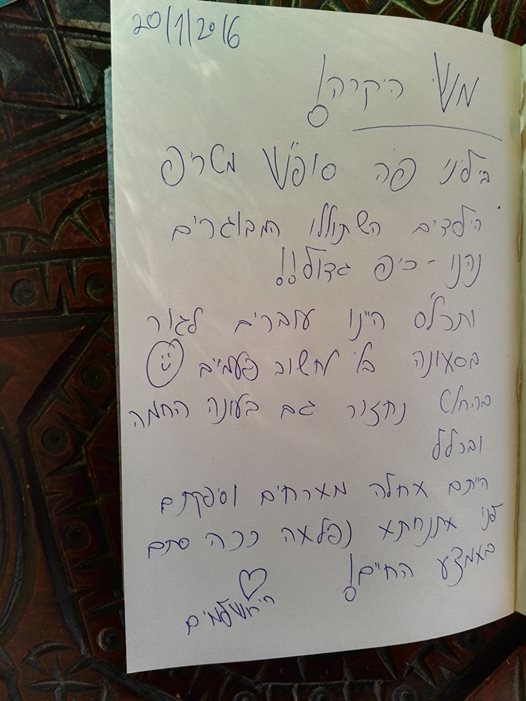 20/1/2016
משי היקרה!
בילינו פה סופ"ש מטריף
הילדים השתוללו המבוגרים
נהנו - כיף גדול!!
ותכל'ס היינו עוברים לגור
בסאונה בלי לחשוב פעמיים
בהחלט נחזור גם בעונה החמה
ובכלל
הייתם אחלה מארחים וסיפקתם
לנו אתנחתא נפלאה ככה סתם
באמצע החיים!
הירושלמים